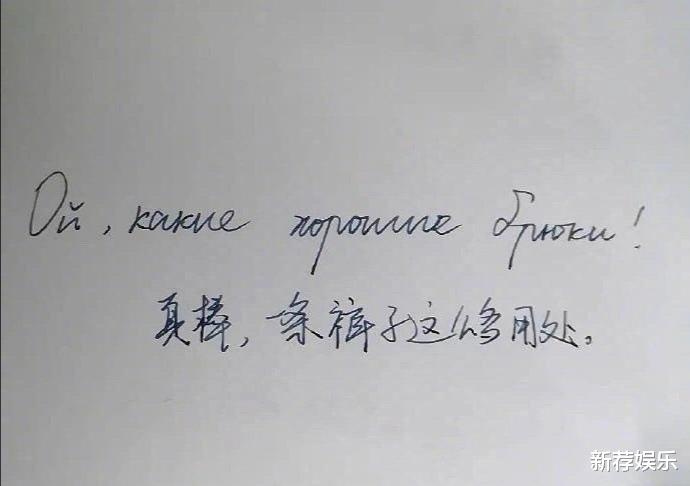 Ой, какие хорошие брюки!
真棒，条裤子这么多用处。
新荐娱乐